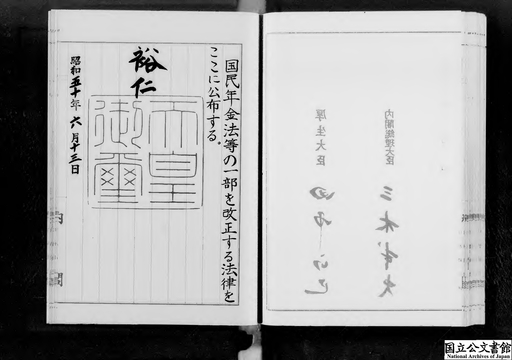 国民年金法等の一部を改正する法律を
ここに公布する。
裕仁
天皇
御璽
昭和五十年六月十三日
内閣
内閣総理大臣
三木武夫
厚生大臣
国立公文書館
National Archives of Japan